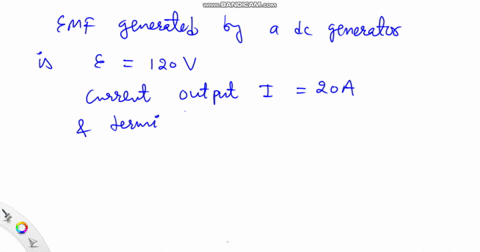 www.BANDICAM.com
EMF generated by a dc generator
is ε = 120 V
Current output I = 20A
& termi